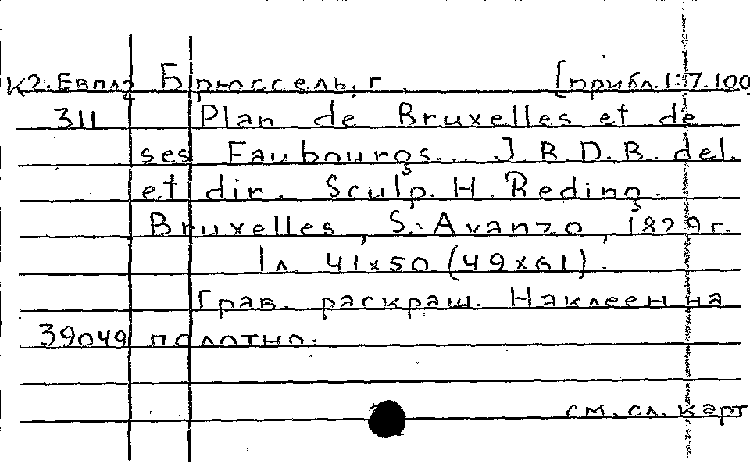 К2.Евпл2 Брюссель, г. [прибл. 1:7.100
311 Plan de Bruxelles et de
ses Faubourgs... J. B. D. B. del.
et dir. Sculp. H. Reding.
Bruxelles, S. Avanzo, 1829 г.
1 л. 41x50 (49x61).
Грав. раскраш. Наклеен на
39049 полотно.
см. сл. карт